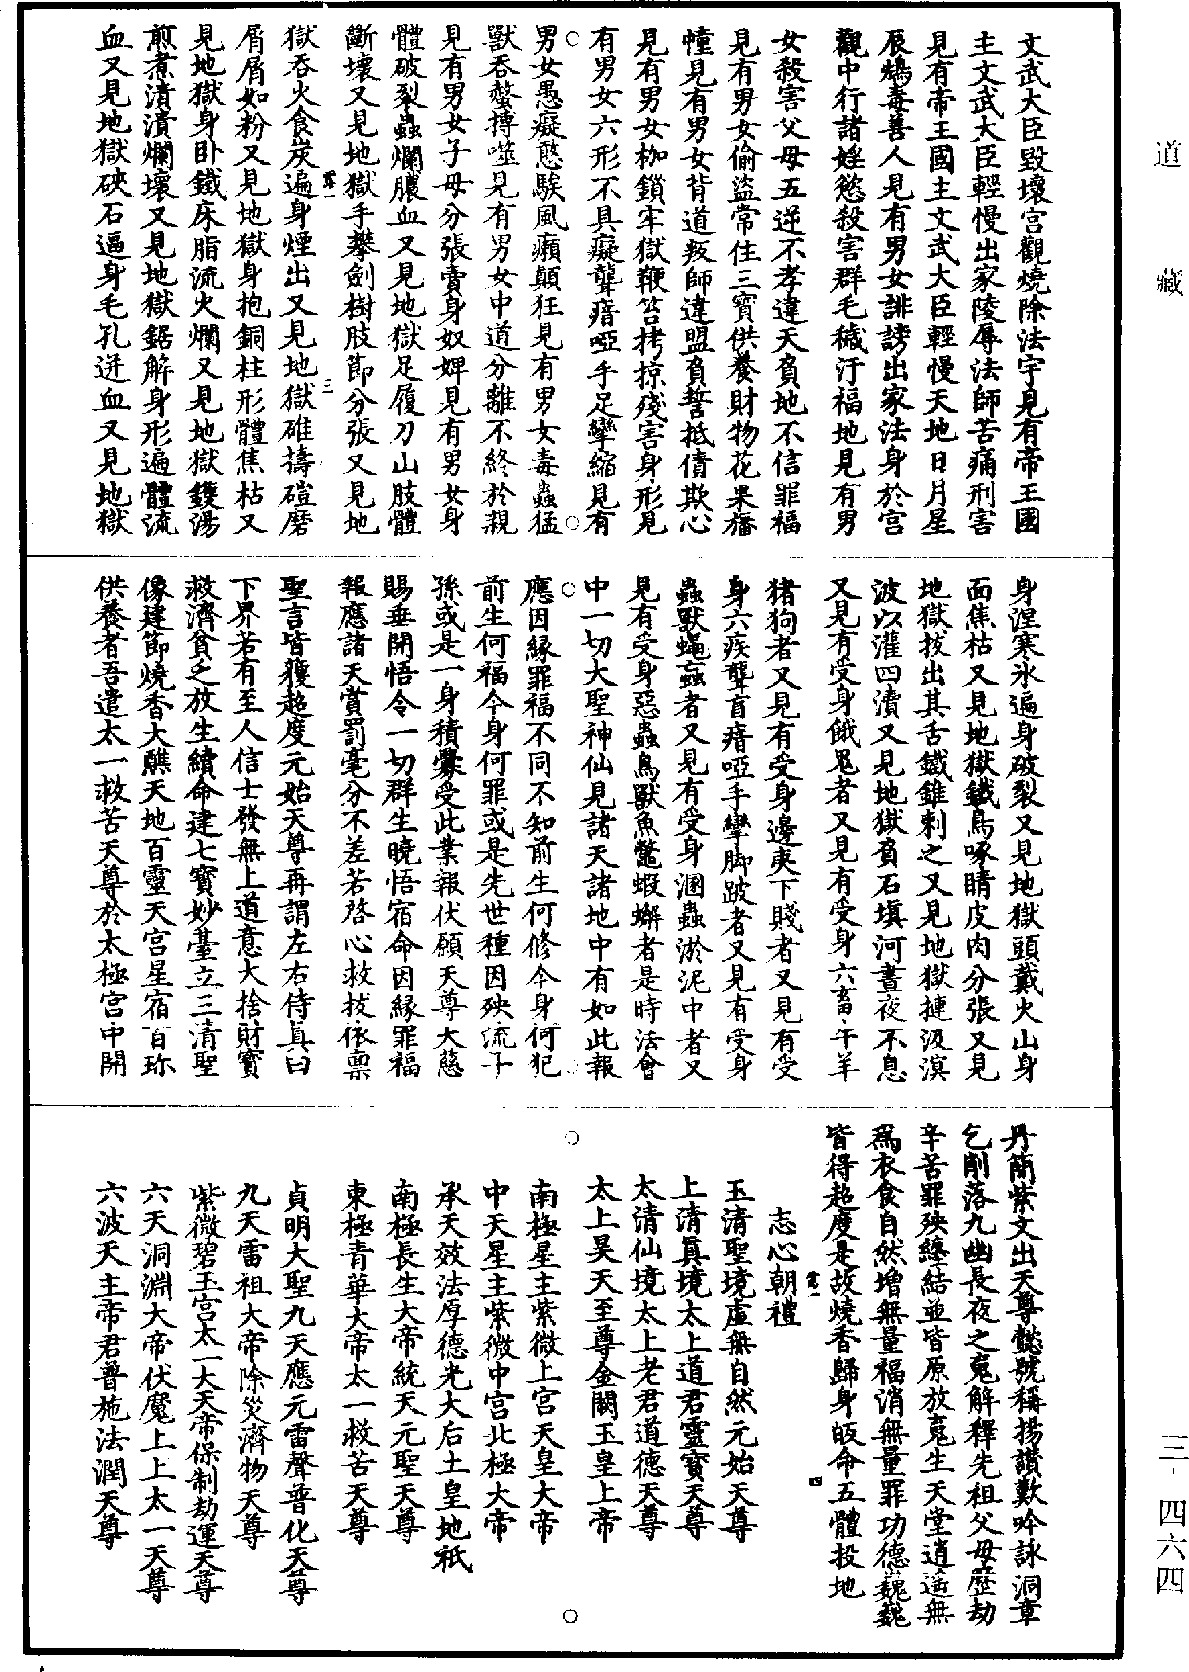 道藏
三-四六四
文武大臣毀壞宮觀燒除法宇見有帝王國
主文武大臣輕慢出家陵辱法師苦痛刑害
見有帝王國主文武大臣輕慢天地日月星
辰鴆毒善人見有男女誹謗出家法身於宮
觀中行諸婬慾殺害群毛穢汙福地見有男
女殺害父母五逆不孝違天負地不信罪福
見有男女偷盜常住三寶供養財物花果旛
幢見有男女背道叛師違盟負誓抵債欺心
見有男女枷鎖牢獄鞭笞拷掠殘害身形見
有男女六形不具癡聾瘖啞手足攣縮見有
男女愚癡憨騃風癲顛狂見有男女毒蟲猛
獸吞螫搏噬見有男女中道分離不終於親
見有男女子母分張賣身奴婢見有男女身
體破裂蟲爛膿血又見地獄足履刀山肢體
斷壞又見地獄手攀劍樹肢節分張又見地
獄吞火食炭遍身煙出又見地獄碓擣磑磨
屑屑如粉又見地獄身抱銅柱形體焦枯又
見地獄身臥鐵床脂流火爛又見地獄鑊湯
煎煮漬潰爛壞又見地獄鋸解身形遍體流
血又見地獄硤石逼身毛孔迸血又見地獄
身涅寒氷遍身破裂又見地獄頭戴火山身
面焦枯又見地獄鐵鳥啄睛皮肉分張又見
地獄拔出其舌鐵錐刺之又見地獄摙汲溟
波以灌四瀆又見地獄負石填河晝夜不息
又見有受身餓鬼者又見有受身六畜牛羊
猪狗者又見有受身邊夷下賤者又見有受
身六疾聾盲瘖啞手攣脚跛者又見有受身
蟲獸蠅蝱者又見有受身溷蟲淤泥中者又
見有受身惡蟲鳥獸魚鱉蝦蠏者是時法會
中一切大聖神仙見諸天諸地中有如此報
應因緣罪福不同不知前生何修今身何犯
前生何福今身何罪或是先世種因殃流子
孫或是一身積釁受此業報伏願天尊大慈
賜垂開悟令一切群生曉悟宿命因緣罪福
報應諸天賞罰毫分不差若啓心救拔依禀
聖言皆獲超度元始天尊再謂左右侍真曰
下界若有至人信士發無上道意大捨財寶
救濟貧乏放生續命建七寶妙臺立三清聖
像建節燒香大醮天地百靈天宮星宿百珎
供養者吾遣太一救苦天尊於太極宮中開
丹簡紫文出天尊懿號稱揚讚歎吟詠洞章
乞削落九幽長夜之魂解釋先祖父母歷劫
辛苦罪殃纏結並皆原放魂生天堂逍遙無
爲衣食自然增無量福消無量罪功德巍巍
皆得超度是故燒香歸身皈命五體投地
志心朝禮
玉清聖境虛無自然元始天尊
上清眞境太上道君靈寶天尊
太清仙境太上老君道德天尊
太上昊天至尊金闕玉皇上帝
南極星主紫微上宮天皇大帝
中天星主紫微中宮北極大帝
承天效法厚德光大后土皇地祇
南極長生大帝統天元聖天尊
東極青華大帝太一救苦天尊
貞明大聖九天應元雷聲普化天尊
九天雷祖大帝除災濟物天尊
紫微碧玉宮太一大天帝保制劫運天尊
六天洞淵大帝伏魔上上太一天尊
六波天主帝君普施法潤天尊